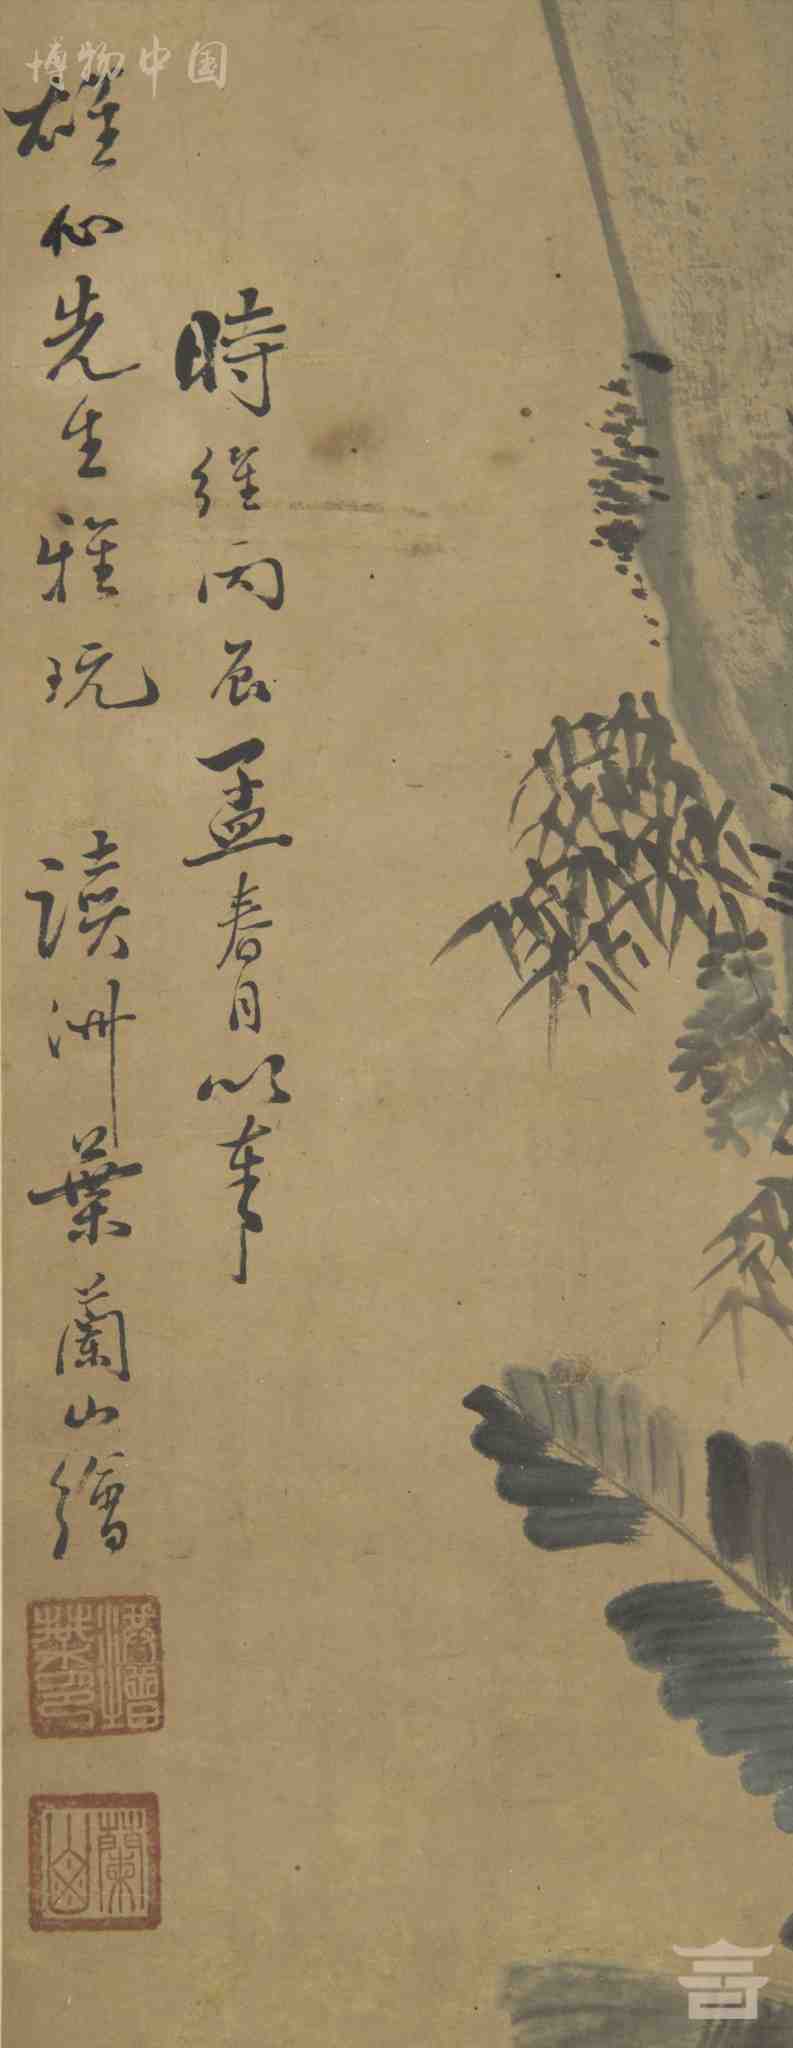 博物中国
時維丙辰孟春月以奉
雄心先生雅玩 讀洲葉蘭山繪
蘭山